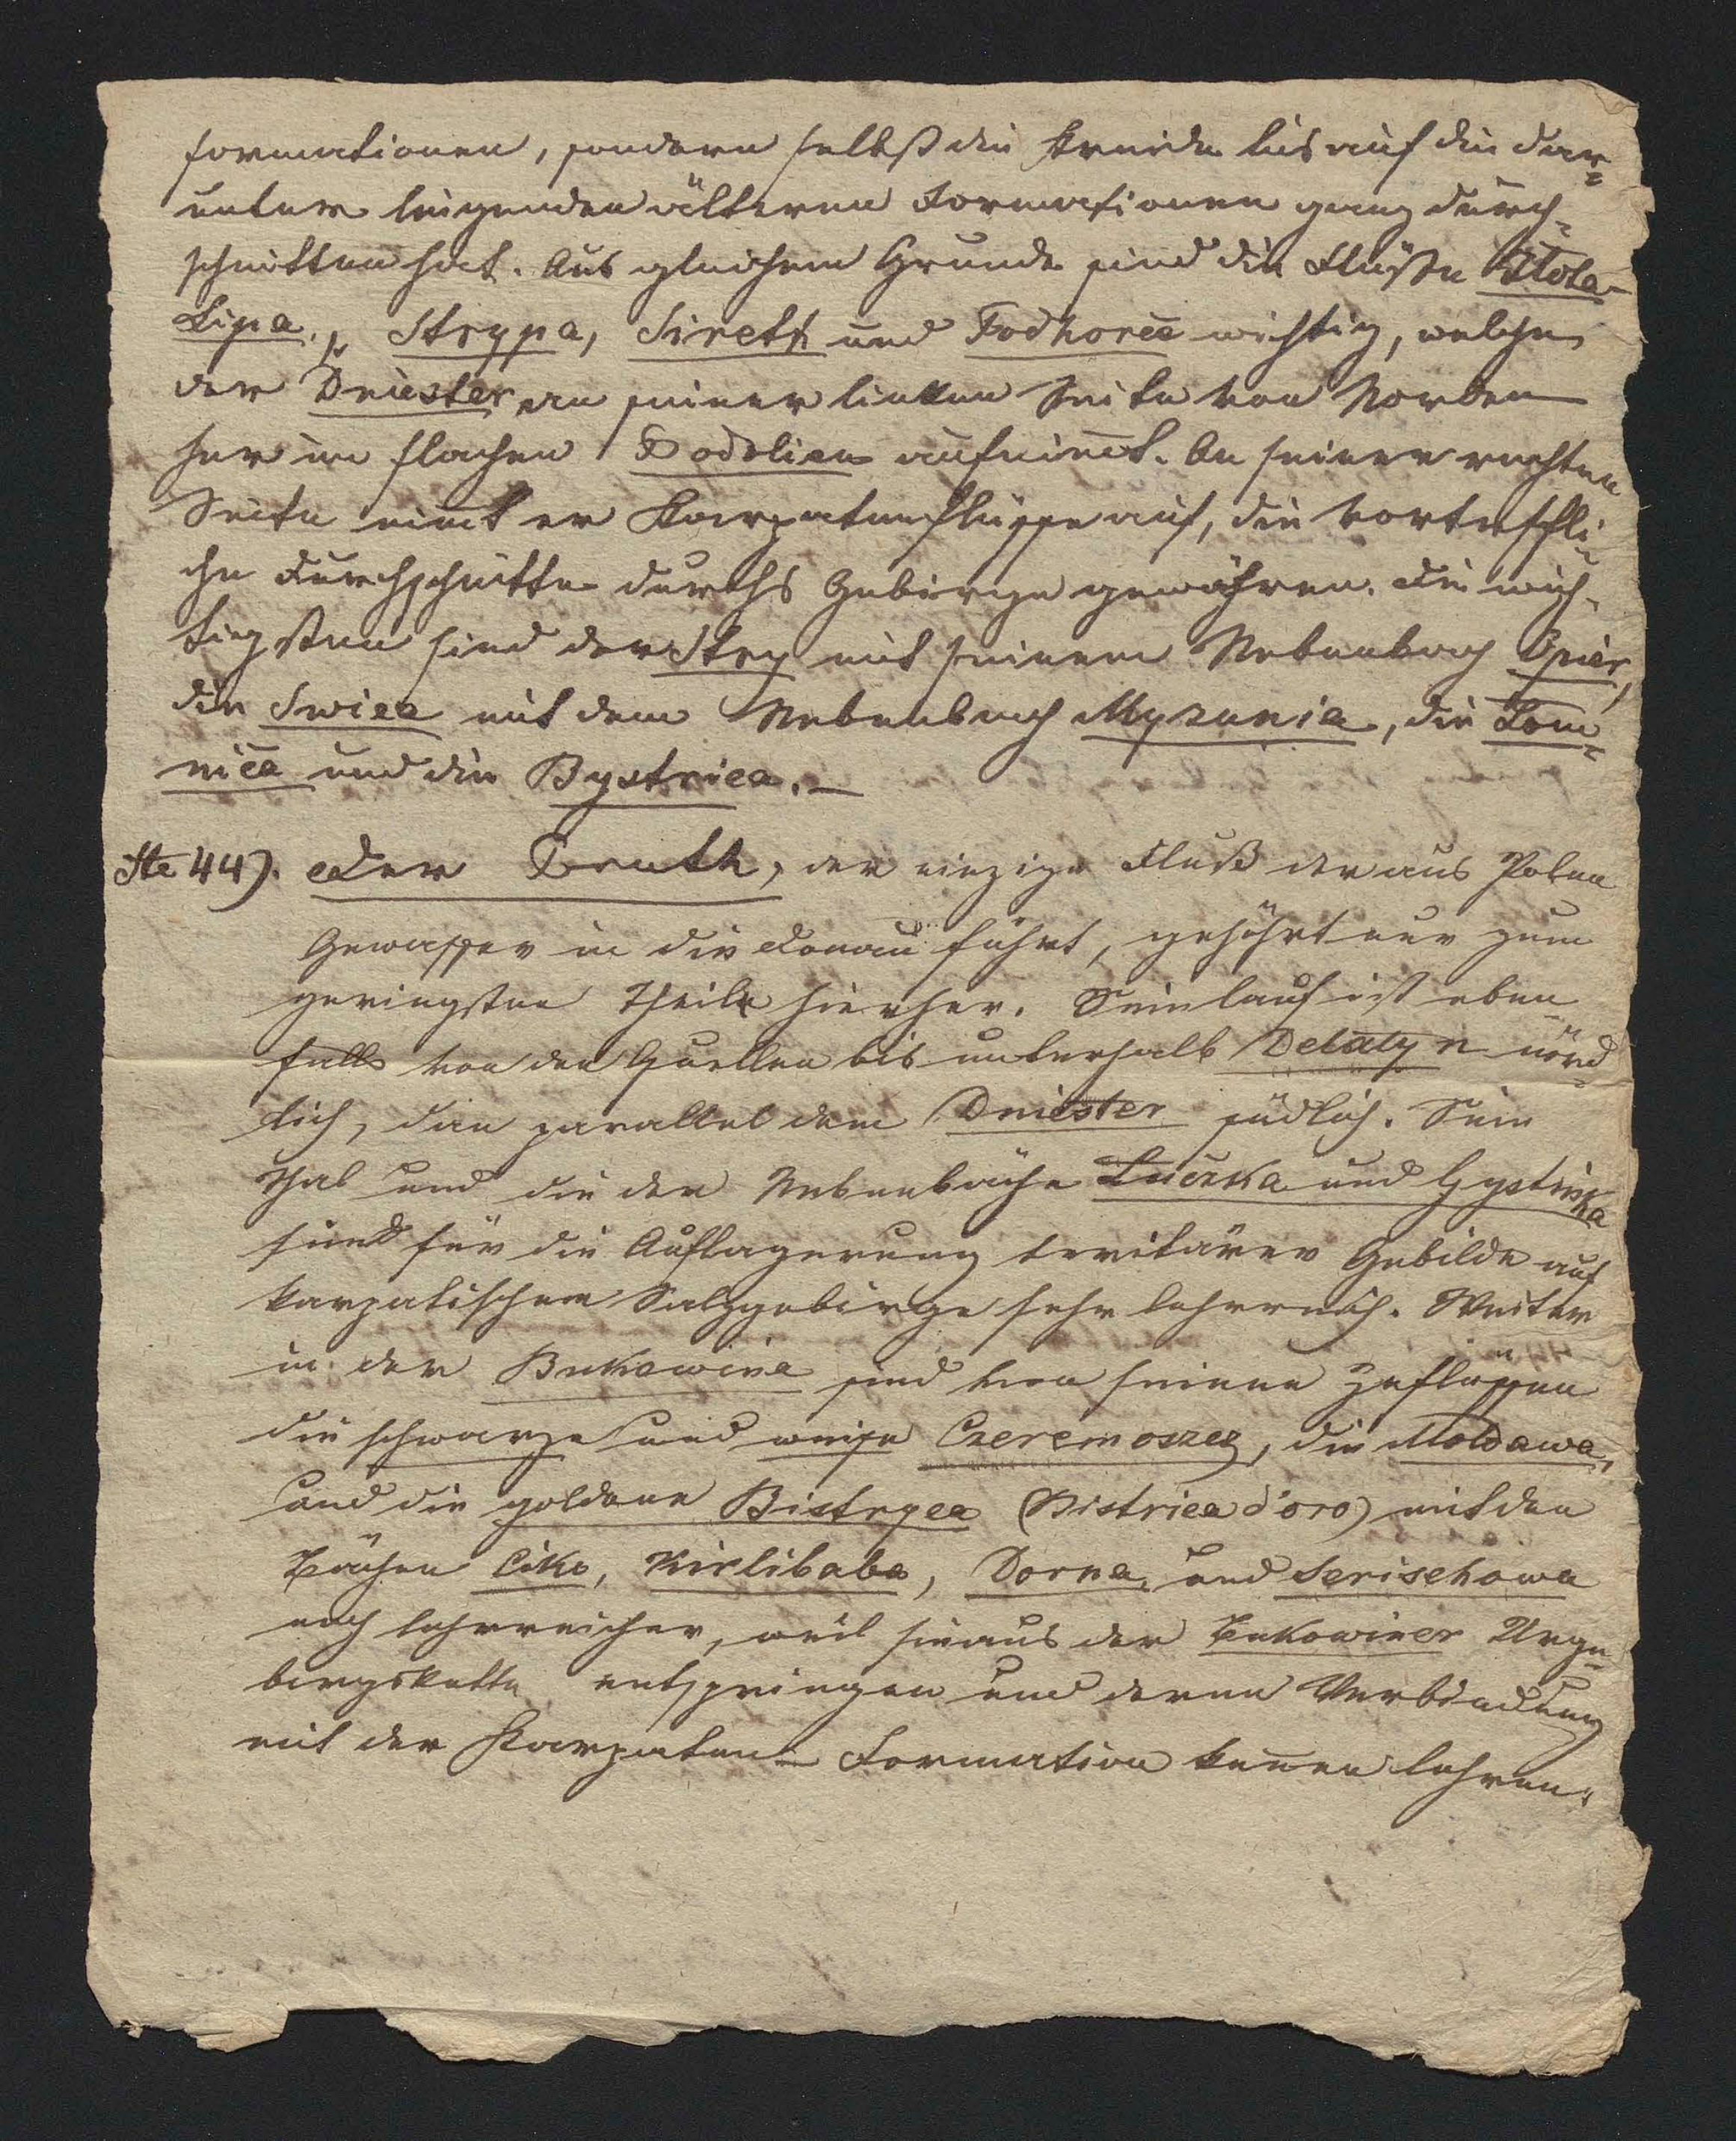 formationen, sondern selbst die Kreide bis auf die dar=
unter liegenden älteren Formationen ganz durch-
schnitten hat. Aus gleichem Grunde sind die Flüße Zlota-
Lipa, Strypa, Sireth und Podhorce wichtig, welche
der Dniester an seiner linken Seite von Norden
her im flachen Podolien aufnim̄t. An seiner rechten
Seite nim̄t er Karpatenflüsse auf, die vortreffli=
che Durchschnitte durchs Gebirge gewähren. Die wich-
tigsten sind der Stry mit seinem Nebenbach Opier,
die Swica mit dem Nebenbach Myzunia, die Lom=
nica und die Bystrica. –
Ste 44). Der Pruth, der einzige Fluß der aus Polen
Gewasser in die Donau führt, gehöhrt nur zum
geringsten Theile hierher. Sein lauf ist eben
falls von den Quellen bis unterhalb Delatyn nörd=
lich, dan̄ parallel dem Dniester südlich. Sein
Thal und die der Nebenbäche Luczka und Gystinka
sind für die Auflagerung teritärer Gebilde auf
karpatischem Salzgebirge sehr lehrreich. Weiter
in der Bukowina sind von seinen Zuflüssen
die schwarze und weise Czeremoszez, die Moldawa,
und die goldene Bistryca (Bistrica d'oro) mit den
Bächen Ciko, Kirlibaba, Dorna, und Serischowa
noch lehrreicher, weil sie aus der Bukowiner Urge=
birgskette entspringen und deren Verbindung
mit der Karpaten-Formation ken̄en lehren.